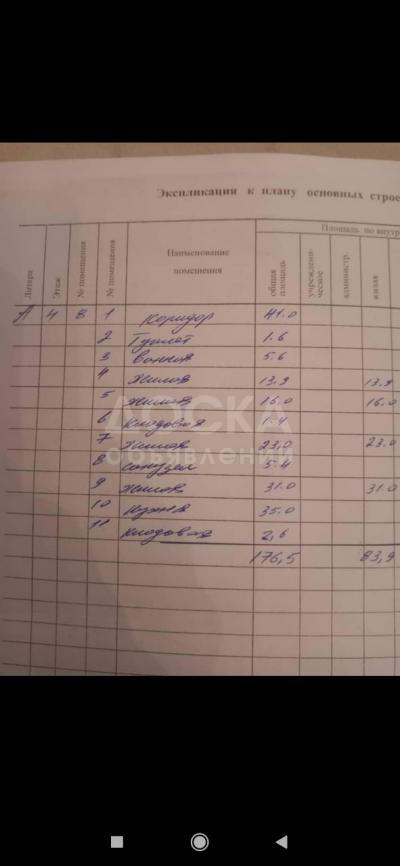 Экспликация к плану основных строе
Площадь по внутр
Литера
Этаж
№ помещения
№ помещения
Наименование помещения
общая площадь
учрежденическое
администр.
жилая
А 4 8 1 Коридор 41.0
2 Туалет 1.6
3 Ванная 5.6
4 Жилая 13.9 13.9
5 Жилая 16.0 16.0
6 Кладовая 1.4
7 Жилая 23.0 23.0
8 Санузел 5.4
9 Жилая 31.0 31.0
10 Кухня 35.0
11 Кладовая 2,6
176,5 83,9
ДОСКА
ОБЪЯВЛЕНИЙ